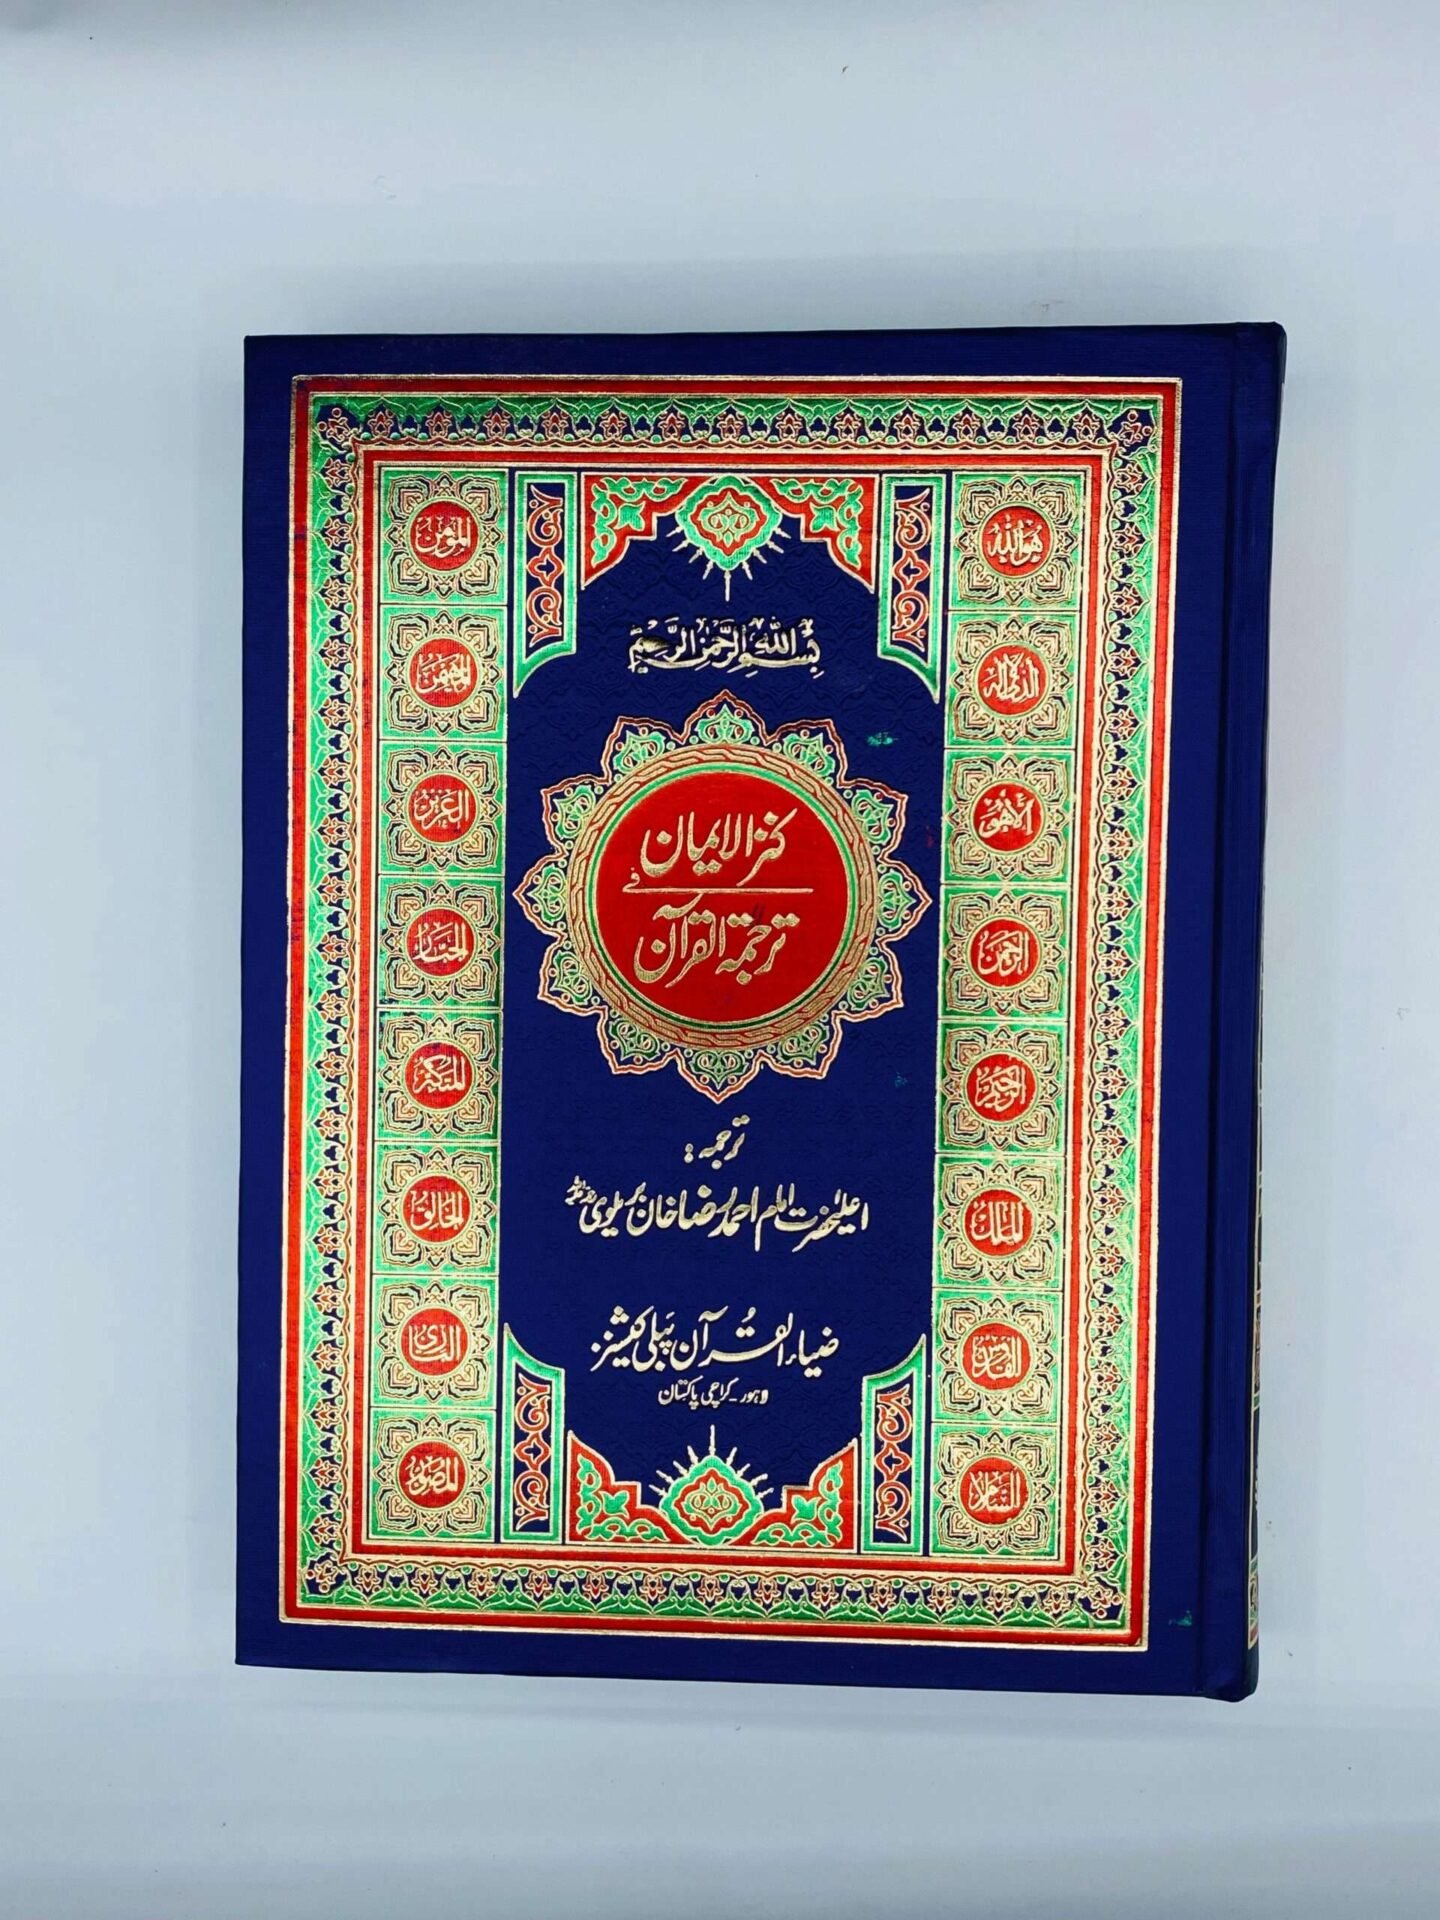 بسم الله الرحمن الرحيم
كنز الايمان
في
ترجمة القرآن
ترجمہ:
اعلیٰحضرت امام احمد رضا خان بریلوی
ضیاء القرآن پبلی کیشنز
لاہور - کراچی پاکستان
هو الله
الذي لا اله
الا هو
الرحمن
الرحيم
الملك
القدوس
السلام
المؤمن
المهيمن
العزيز
الجبار
المتكبر
الخالق
البارئ
المصور